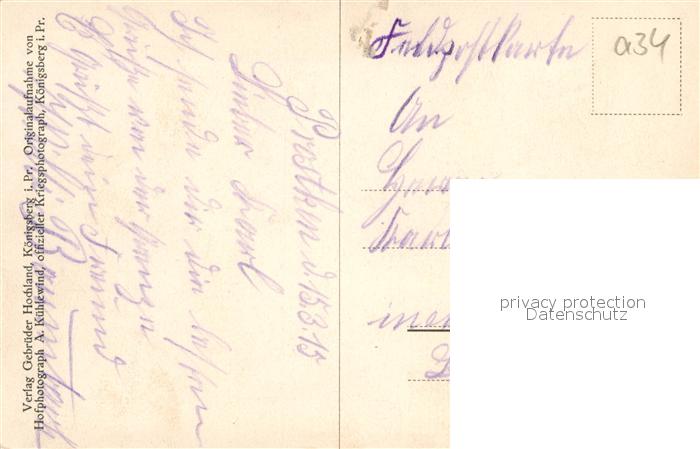 Verlag Gebrüder Hochland, Königsberg i. Pr. Originalaufnahme von
Hofphotograph A. Kühlewind, offizieller Kriegsphotograph, Königsberg i. Pr.
Prostken d 15.3.15
Lieber Karl
Ich sende dir die besten
Grüße von der Grenze
Es grüßt dein Freund
Feldpostkarte
a34
An
Herrn
privacy protection
Datenschutz